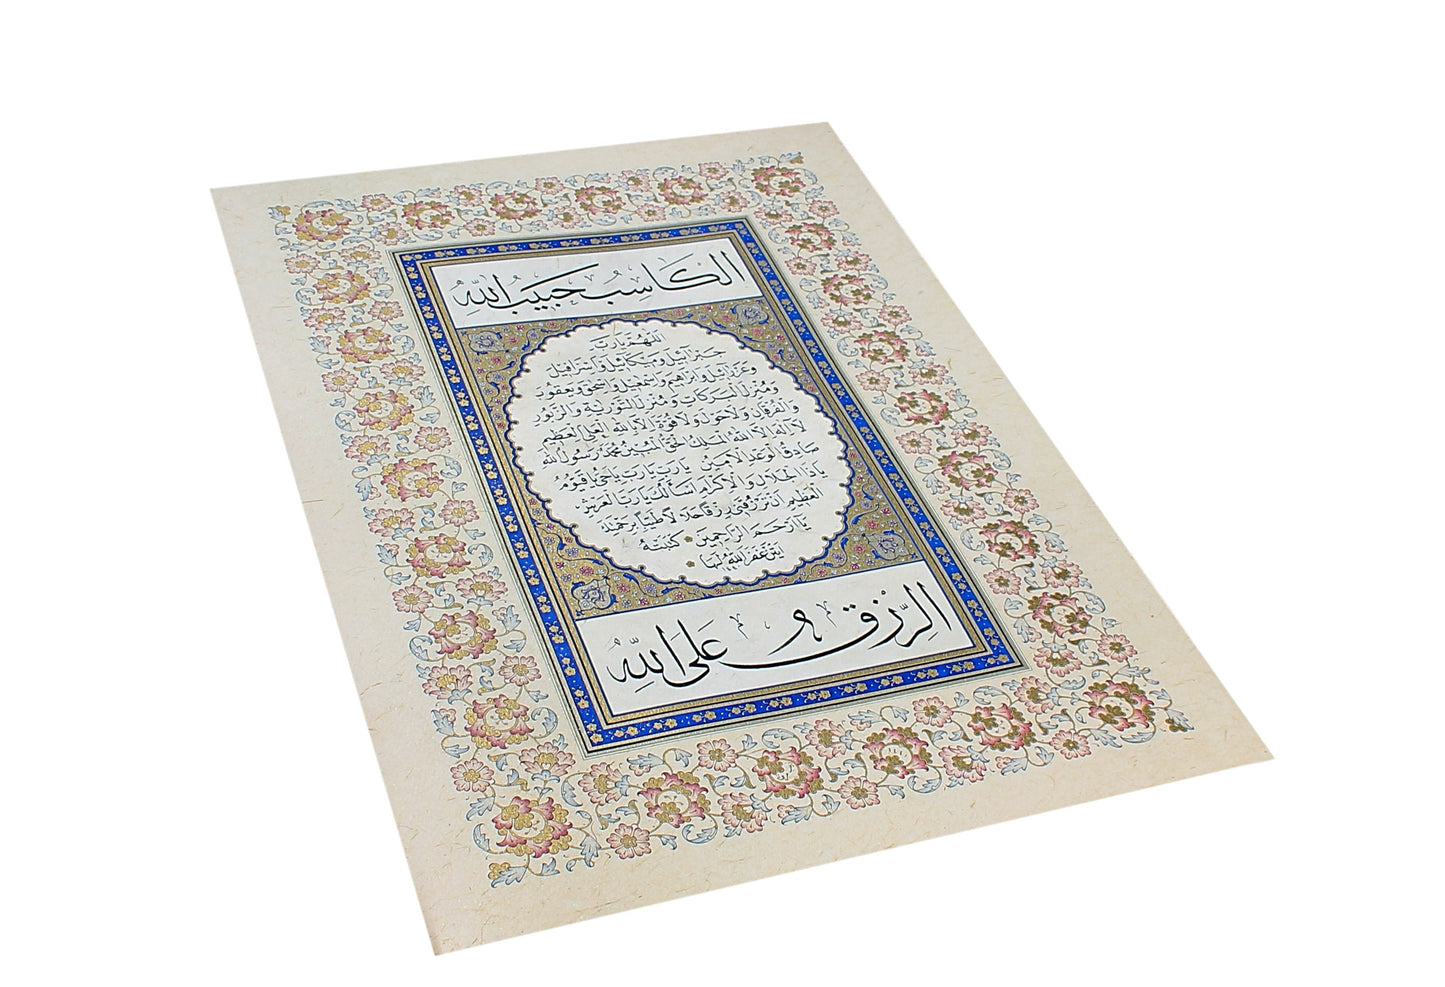 الكاسب حبيب الله
اللهم يا رب
جبرائيل وميكائيل واسرافيل
وعزرائيل وابراهيم واسمعيل واسحق ويعقوب
ومنزل البركات ومنزل التورية والزبور
والفرقان ولا حول ولا قوة الا بالله العلي العظيم
لا اله الا الله الملك الحق المبين محمد رسول الله
صادق الوعد الامين يا رب يا رب يا حي يا قيوم
يا ذا الجلال والاكرام اسألك يا رب العرش
العظيم ان ترزقني رزقا حلالا طيبا برحمتك
يا ارحم الراحمين كتبته
غفر الله لها
الرزق على الله